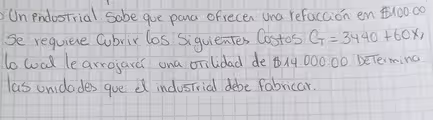 Un industrial sabe que para ofrecer una refacción em $100.00
se requiere cubrir los siguientes costos CT = 3440 + 60x,
lo cual le arrojará una utilidad de $14 000.00 Determina
las unidades que el industrial debe fabricar.